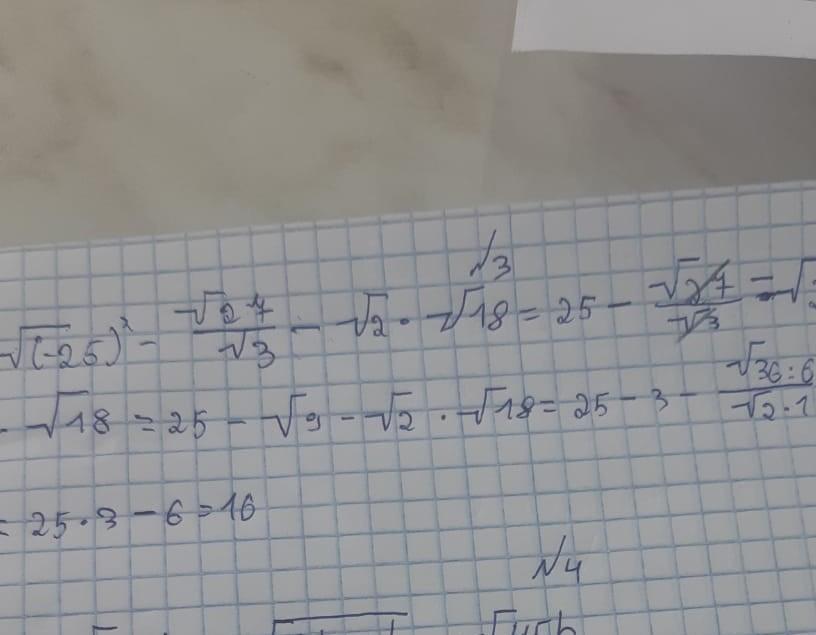 №3
√(-25)² - √27/√3 - √2 · √18 = 25 - √27/√3 - √
· √18 = 25 - √9 - √2 · √18 = 25 - 3 - √36:6/√2·1
= 25 · 3 - 6 = 16
№4